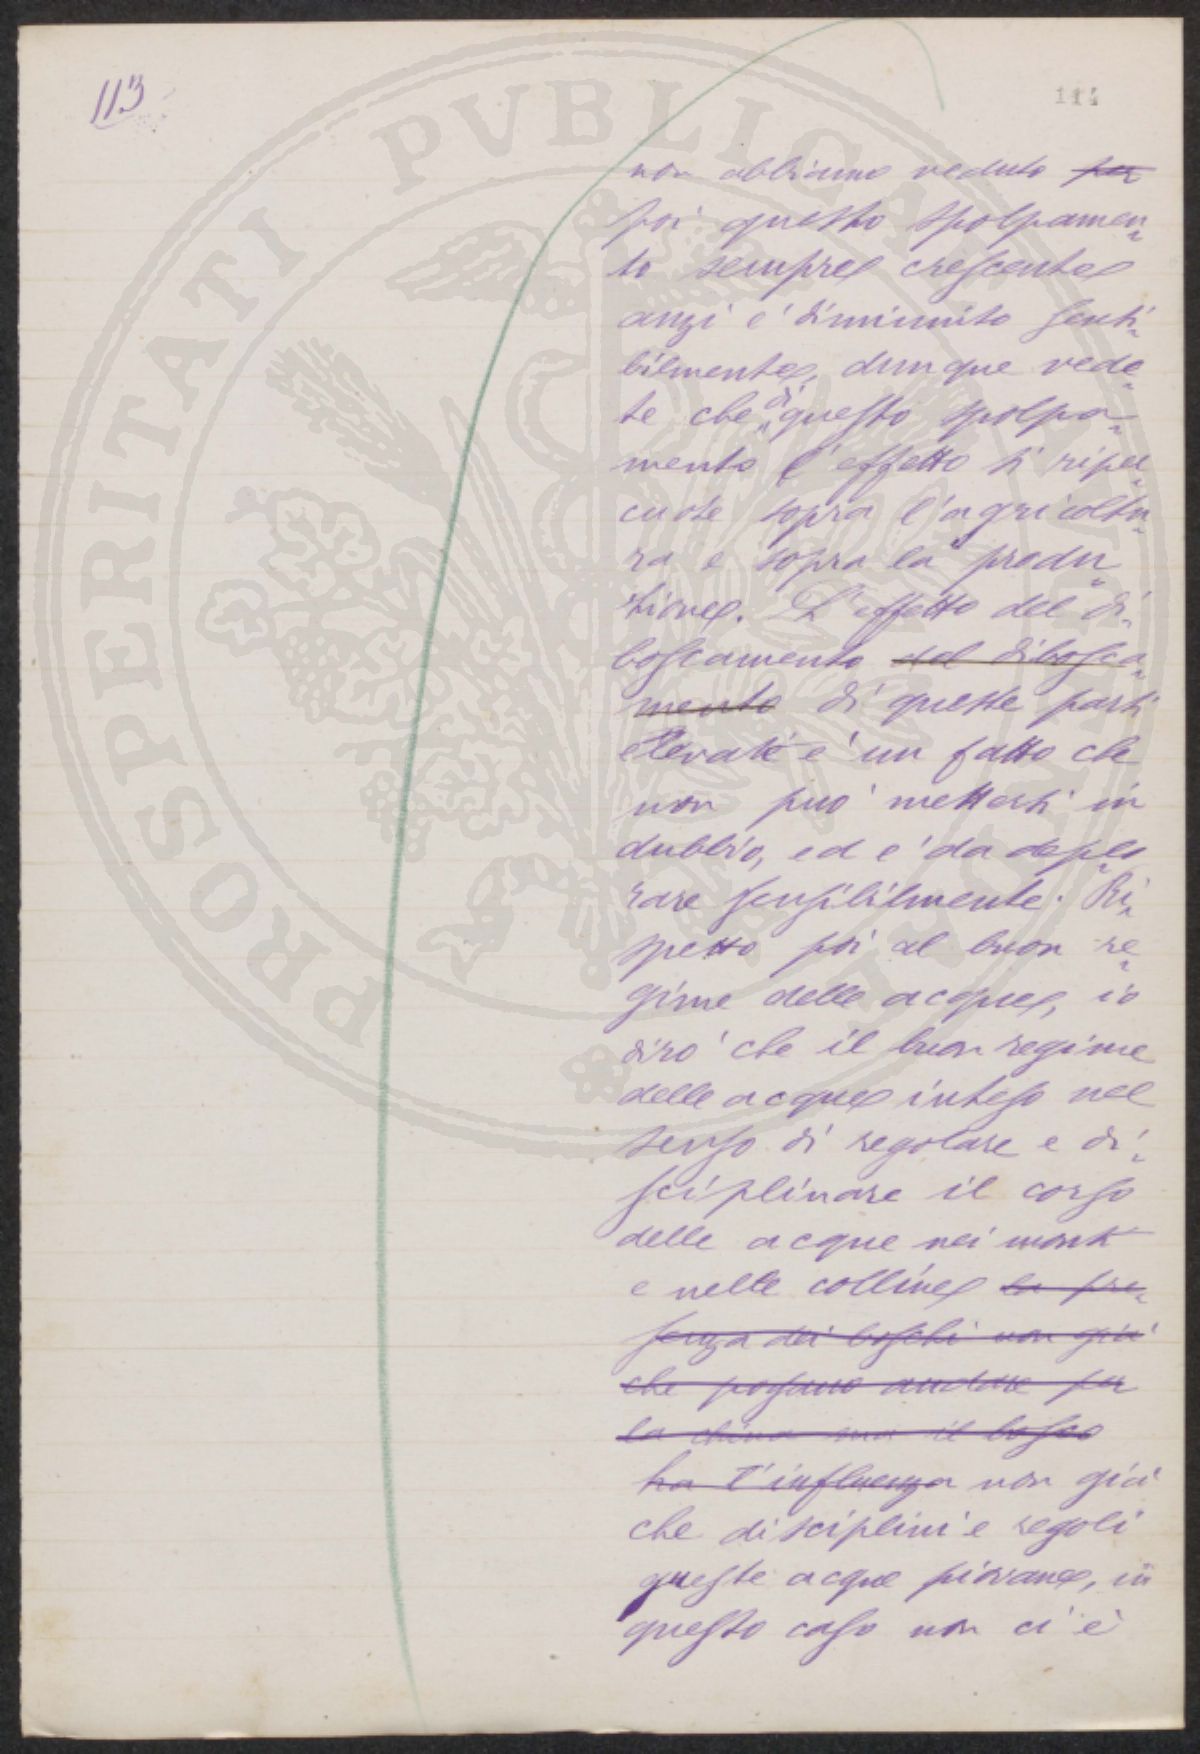 113
114
PROSPERITATI PVBLICAE AVGENDAE
non abbiamo veduto per
poi questo spolpamen„
to sempre crescente
anzi e' diminuito senti„
bilmente, dunque vede„
te che di questo spolpa„
mento l'effetto si riper„
cuote sopra l'agricoltu„
ra e sopra la produ„
zione. L'effetto del di„
boscamento del disbosca„
mento di queste parti
elevate e' un fatto che
non puo' mettersi in
dubbio, ed e' da deplo„
rare sensibilmente. Ri„
spetto poi al buon re„
gime delle acque, io
diro' che il buon regime
delle acque inteso nel
senso di regolare e di„
sciplinare il corso
delle acque nei monti
e nelle colline la pre„
senza dei boschi non gia'
che possano andare per
la china ma il bosco
ha l'influenza non gia'
che disciplini e regoli
queste acque piovane, in
questo caso non ci è